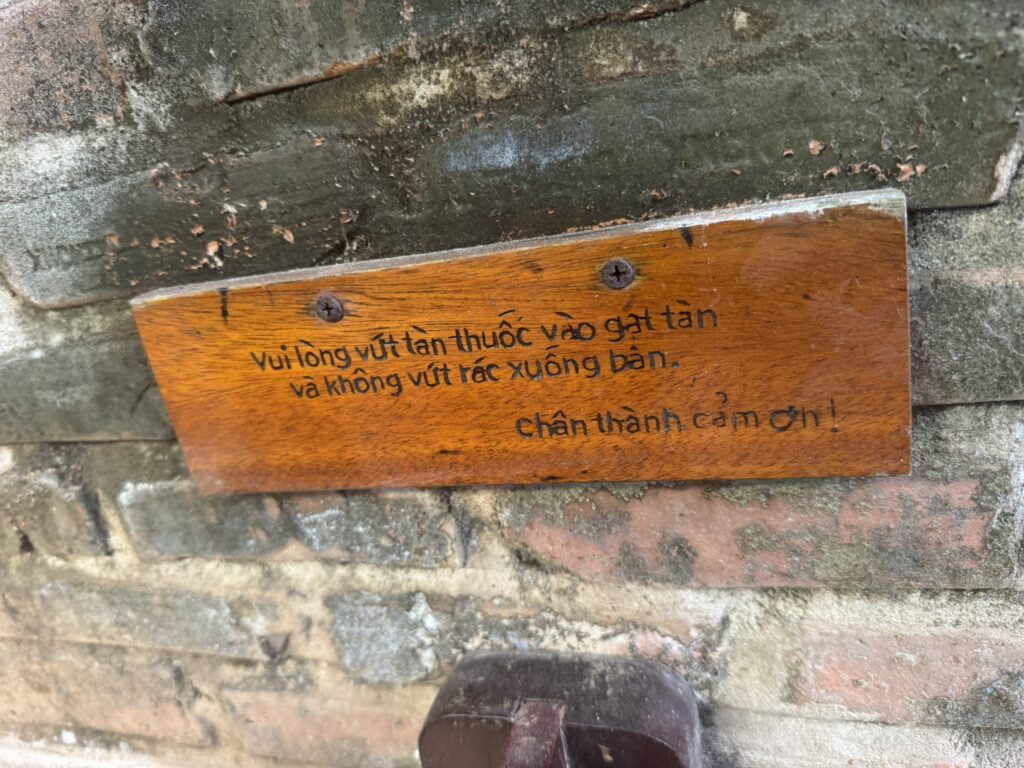 Vui lòng vứt tàn thuốc vào gạt tàn
và không vứt rác xuống bàn.
chân thành cảm ơn!